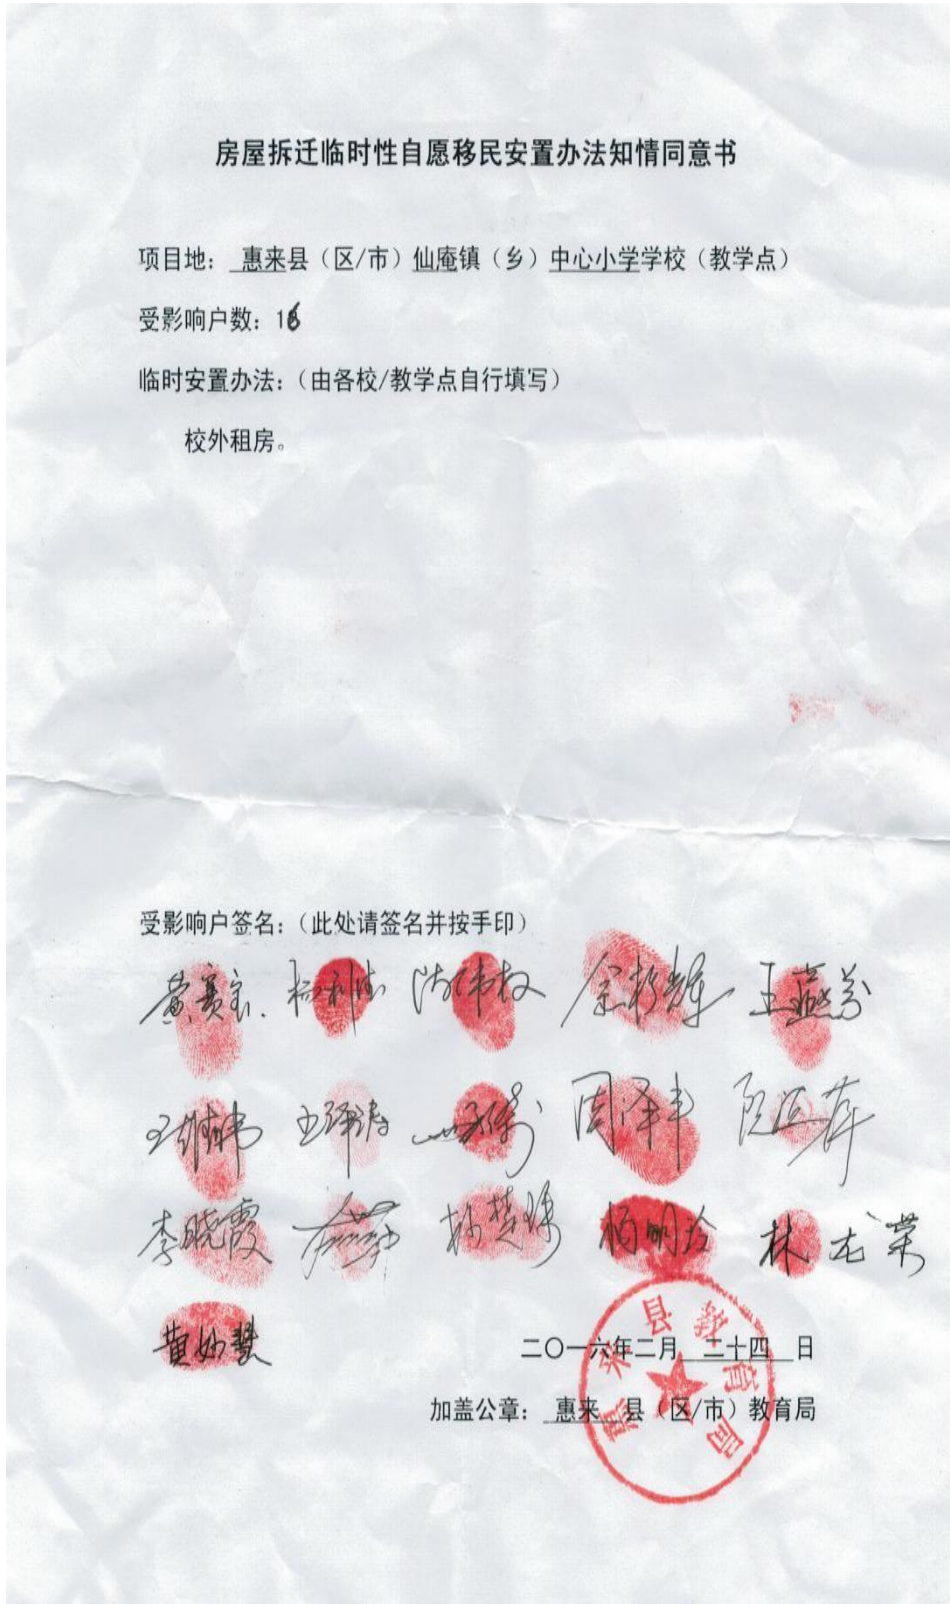 房屋拆迁临时性自愿移民安置办法知情同意书
项目地： 惠来县（区/市）仙庵镇（乡）中心小学学校（教学点）
受影响户数：16
临时安置办法：（由各校/教学点自行填写）
校外租房。
受影响户签名：（此处请签名并按手印）
王燕芬
周泽丰
李晓霞 杨明玲 林龙荣
黄妙慧
二〇一六年二月 二十四 日
加盖公章： 惠来 县（区/市）教育局
惠来县教育局